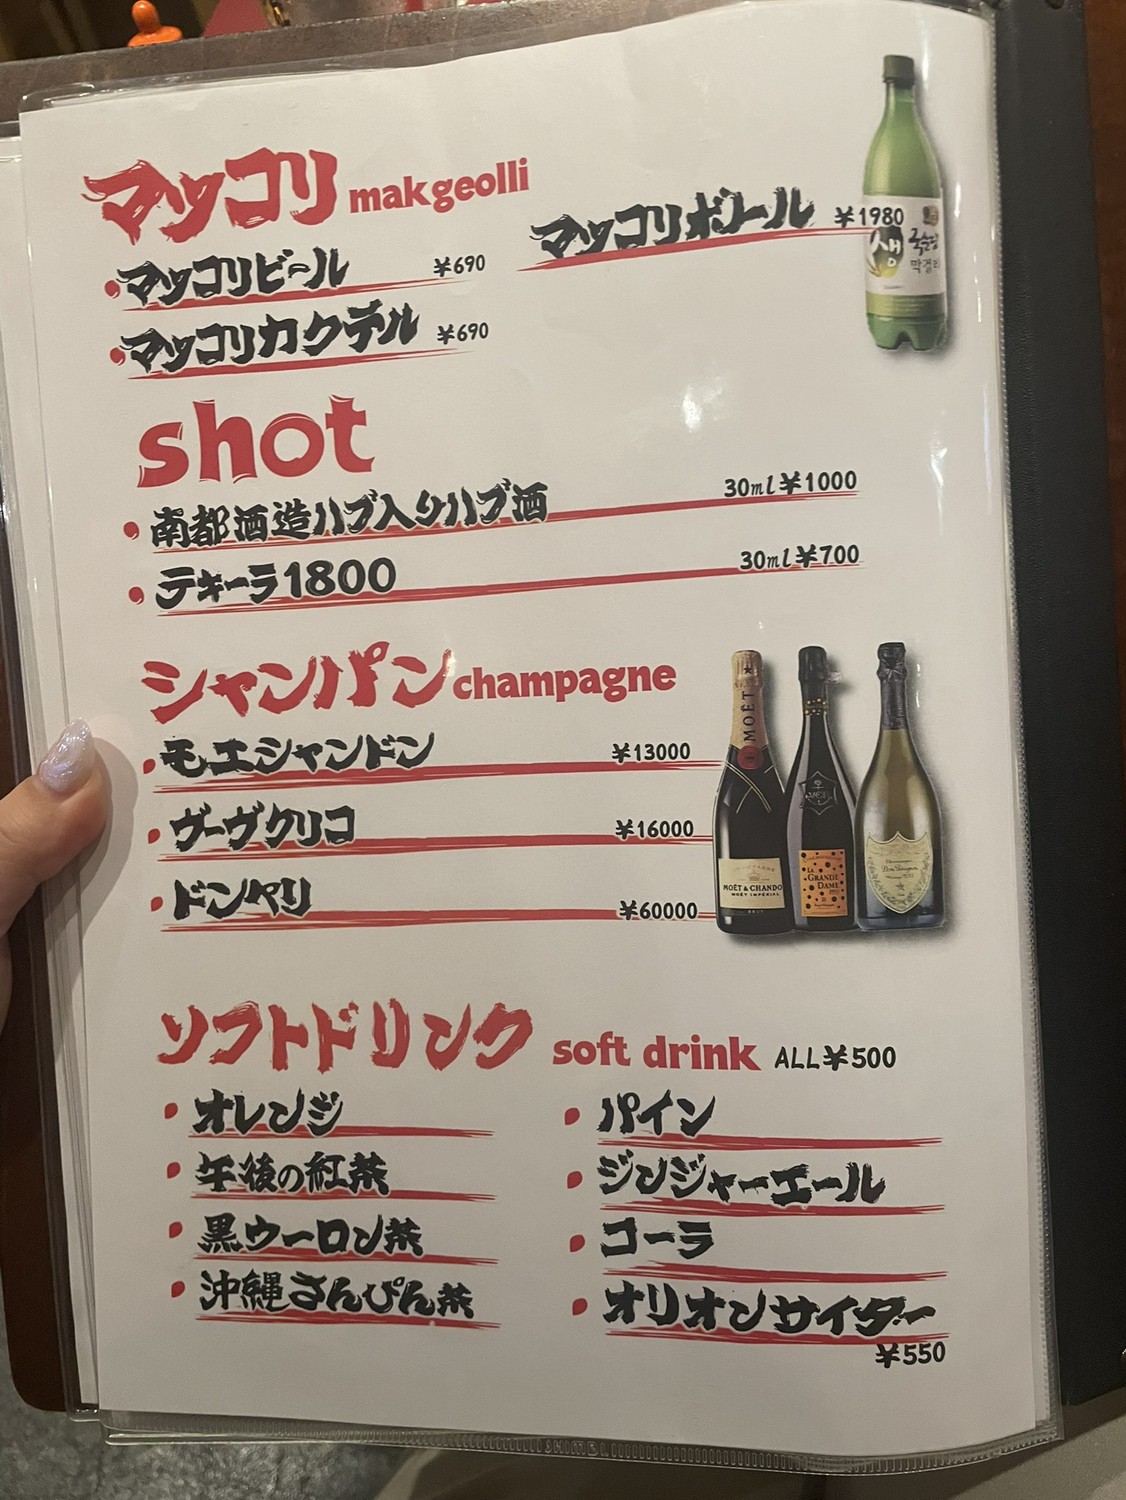 マッコリ makgeolli
マッコリビール ¥690
マッコリカクテル ¥690
マッコリボトル ¥1980
생 국순당
막걸리
shot
南都酒造ハブ入りハブ酒 30ml¥1000
テキーラ1800 30ml¥700
シャンパン champagne
モエシャンドン ¥13000
ヴーヴクリコ ¥16000
ドンペリ ¥60000
MOËT
MOËT & CHANDON
MOËT IMPÉRIAL
BRUT
LA GRANDE DAME
Dom Pérignon
ソフトドリンク soft drink ALL¥500
オレンジ
午後の紅茶
黒ウーロン茶
沖縄さんぴん茶
パイン
ジンジャーエール
コーラ
オリオンサイダー
¥550